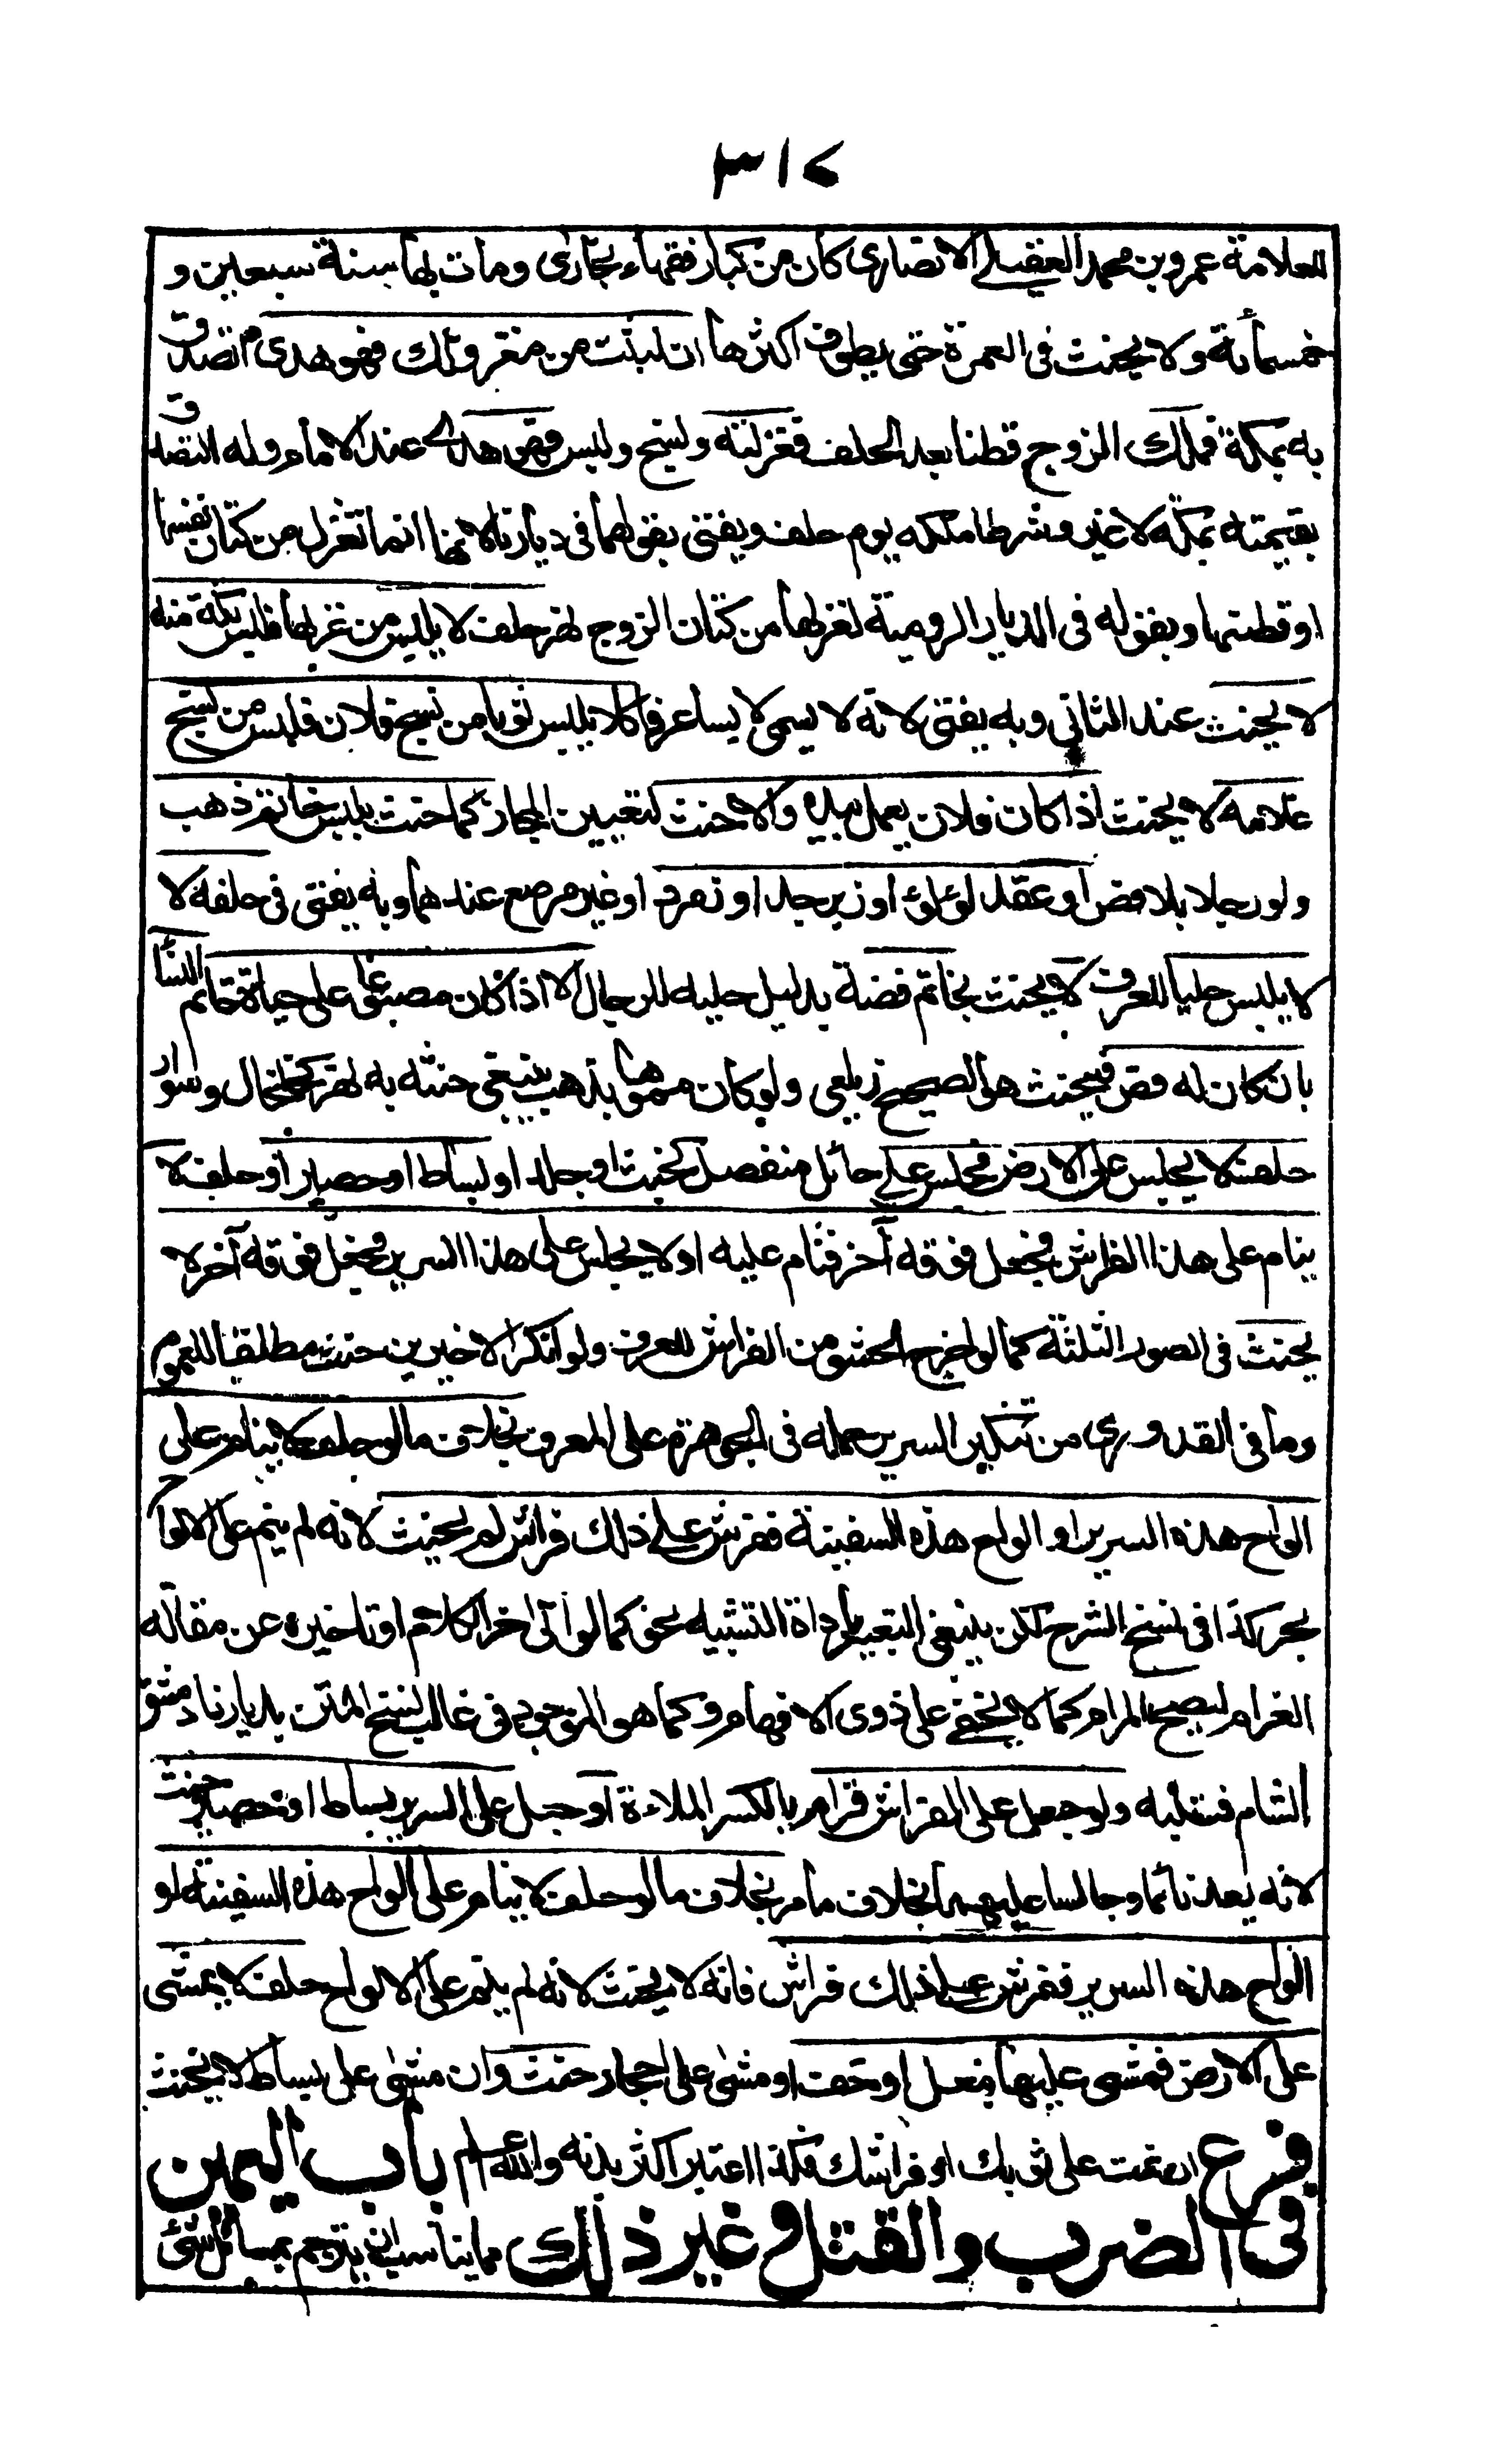 ٣١٧
للعلامة عمرو بن محمد العقيلي الانصاري كان من كبار فقهاء بخارى ومات بها سنة سبعين و
خمسمائة ولا يحنث فى العمرة حتى يطوف اكثرها ان لبست من مغزولك فهو هدى اى تصدق
به بمكة فملك الزوج قطنا بعد الحلف فغزلته ونسج ولبس فهو هدى عند الامام وله التصدق
بقيمته بمكة لا غير وشرطا ملكه يوم حلف ويفتى بقولهما فى ديارنا لانها انما تغزل من كتان نفسها
او قطنها وبقوله فى الديار الرومية لغزلها من كتان الزوج نهر حلف لا يلبس من غزلها فلبس تكة منه
لا يحنث عند الثانى وبه يفتى لانه لا يسمى لابسا عرفا كلا يلبس ثوبا من نسج فلان فلبس من نسج
غلامه لا يحنث اذا كان فلان يعمل بيده والا حنث لتعيين المجاز كما حنث بلبس خاتم ذهب
ولو رجلا بلا فص او عقد لؤلؤ او زبرجد او زمرد او غير مرصع عندهما وبه يفتى فى حلفه لا
لا يلبس حليا للعرف لا يحنث بخاتم فضة بدليل حليه للرجال الا اذا كان مصبوغا على هيأة خاتم النسا
بان كان له فص فيحنث هو الصحيح زيلعى ولو كان مموها بذهب ينبغى حنثه به نهر كخلخال وسوار
حلف لا يجلس على الارض فجلس على حائل منفصل كخشب او جلد او بساط او حصير او حلف لا
ينام على هذا الفراش فجعل فوقه آخر فنام عليه او لا يجلس على هذا السرير فجعل فوقه آخر لا
يحنث فى الصور الثلثة كما لو اخرج الحشو من الفراش للعرف ولو نكر الاخيرين حنث مطلقا للعموم
وما فى القدورى من تنكير السرير حمله فى الجوهرة على المعرف بخلاف ما لو حلف لا ينام على
الواح هذه السرير او الواح هذه السفينة ففرش على ذلك فراش لم يحنث لانه لم ينم على الالواح
بحر كذا فى نسخ الشرح لكن ينبغى التعبير باداة التشبيه بنحو كما لو اتى اخر الكلام او تاخيره عن مقاله
الغرام ليصح المرام كما لا يخفى على ذوى الافهام وكما هو الموجود فى غالب نسخ المتن بديارنا دمشق
الشام فتنبه ولو جعل على الفراش قرام بالكسر الملاءة او جعل على السرير بساط او حصير حنث
لانه يعد نائما وجالسا عليهما بخلاف ما مر بخلاف ما لو حلف لا ينام على الواح هذه السفينة او
الواح هذه السرير ففرش على ذلك فراش فانه لا يحنث لانه لم ينم على الالواح حلف لا يمشى
على الارض فمشى عليها بنعل او خف او مشى على احجار حنث وان مشى على بساط لا يحنث
فرع ان نمت على ثوبك او فراشك فكذا اعتبر اكثر بدنه والله اعلم باب اليمين
فى الضرب والقتل وغير ذلك مما يناسب ان يترجم بمسائل شتى